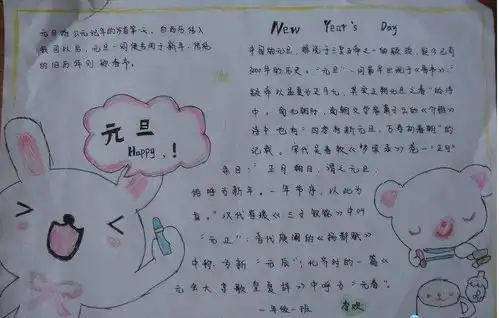 元旦指公元纪年的岁首第一天,自西历传入
我国以后,元旦一词便专用于新年,传统
的旧历年则称春节。
元旦
Happy,!
New Year's Day
中国的元旦,据说于三皇五帝之一的颛顼,距今已有
3000年的历史。"元旦"一词最早出现于《晋书》:"
颛帝以孟夏为正月元,其实正朔元旦之春"的诗
中。南北朝时,南朝文学萧子云的《介雅》
诗中也有"四季新元旦,万寿初春朝"的
记载。宋代吴自牧《梦梁录》卷一"正月"
条目:"正月朔日,谓之元旦,
俗呼为新年。一年节序,以此为
首。"汉代崔瑗《三子钗铭》中叫
"元正";晋代庾阐的《扬都赋》
中称为新"元辰";北齐时的一篇《
元会大享歌皇夏辞》中呼为"元春"。
一年级一班